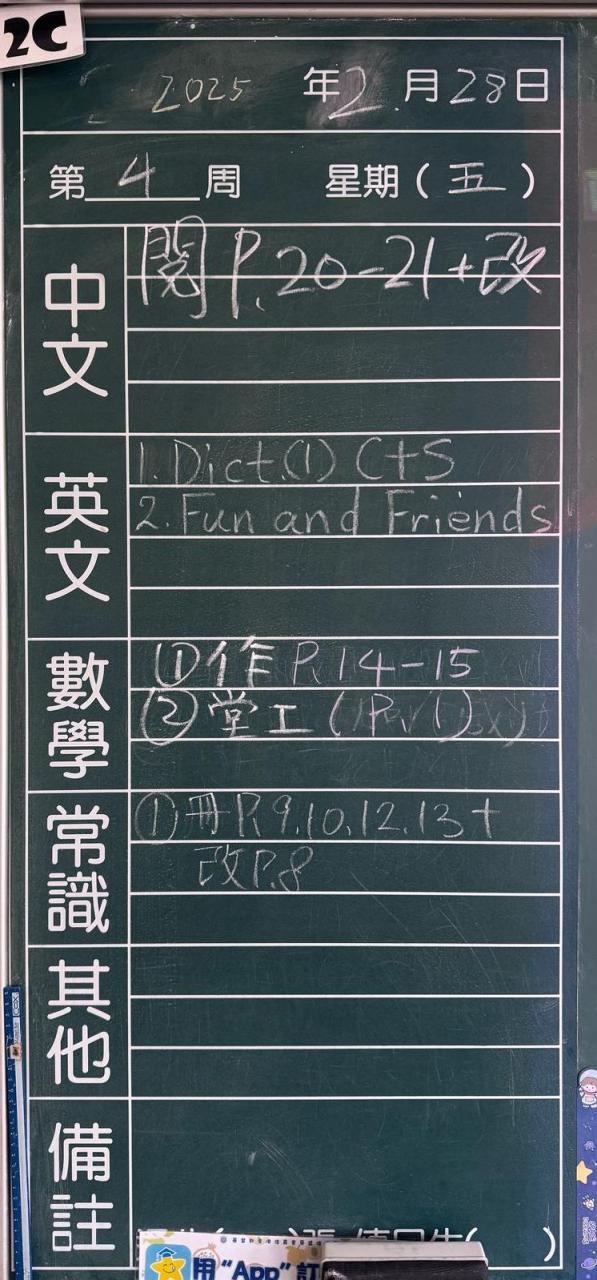 2C
2025 年 2 月 28 日
第 4 周 星期 ( 五 )
中文
閱 P. 20-21 + 改
英文
1. Dict. (1) C+S
2. Fun and Friends
數學
① 作 P. 14-15
② 堂工 (
常識
① 冊 P. 9, 10, 12, 13 +
改 P. 8
其他
備註
用 "APP" 訂